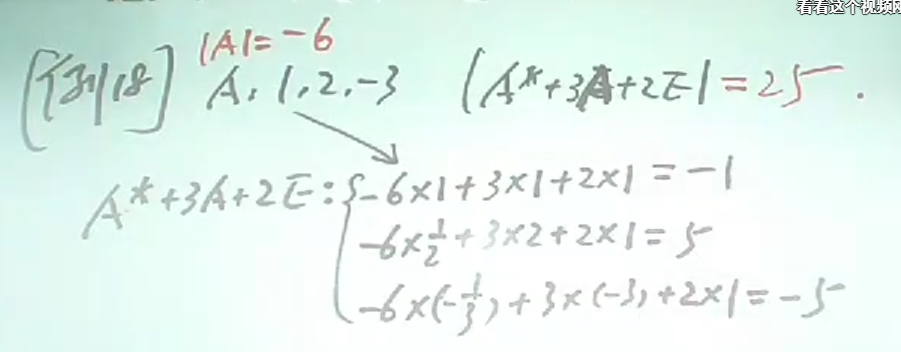 看看这个视频网
|A|=-6
[例18] A, 1, 2, -3 |A*+3A+2E|=25.
A*+3A+2E: {-6×1+3×1+2×1=-1
-6×1/2+3×2+2×1=5
-6×(-1/3)+3×(-3)+2×1=-5